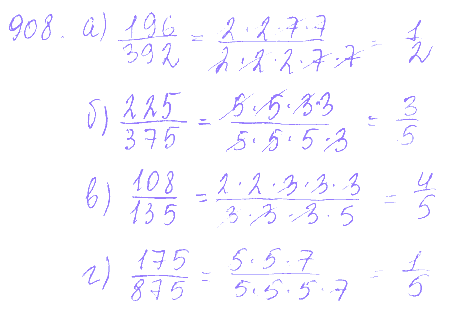 908. а) 196/392 = 2·2·7·7/2·2·2·7·7 = 1/2
б) 225/375 = 5·5·3·3/5·5·5·3 = 3/5
в) 108/135 = 2·2·3·3·3/3·3·3·5 = 4/5
г) 175/875 = 5·5·7/5·5·5·7 = 1/5